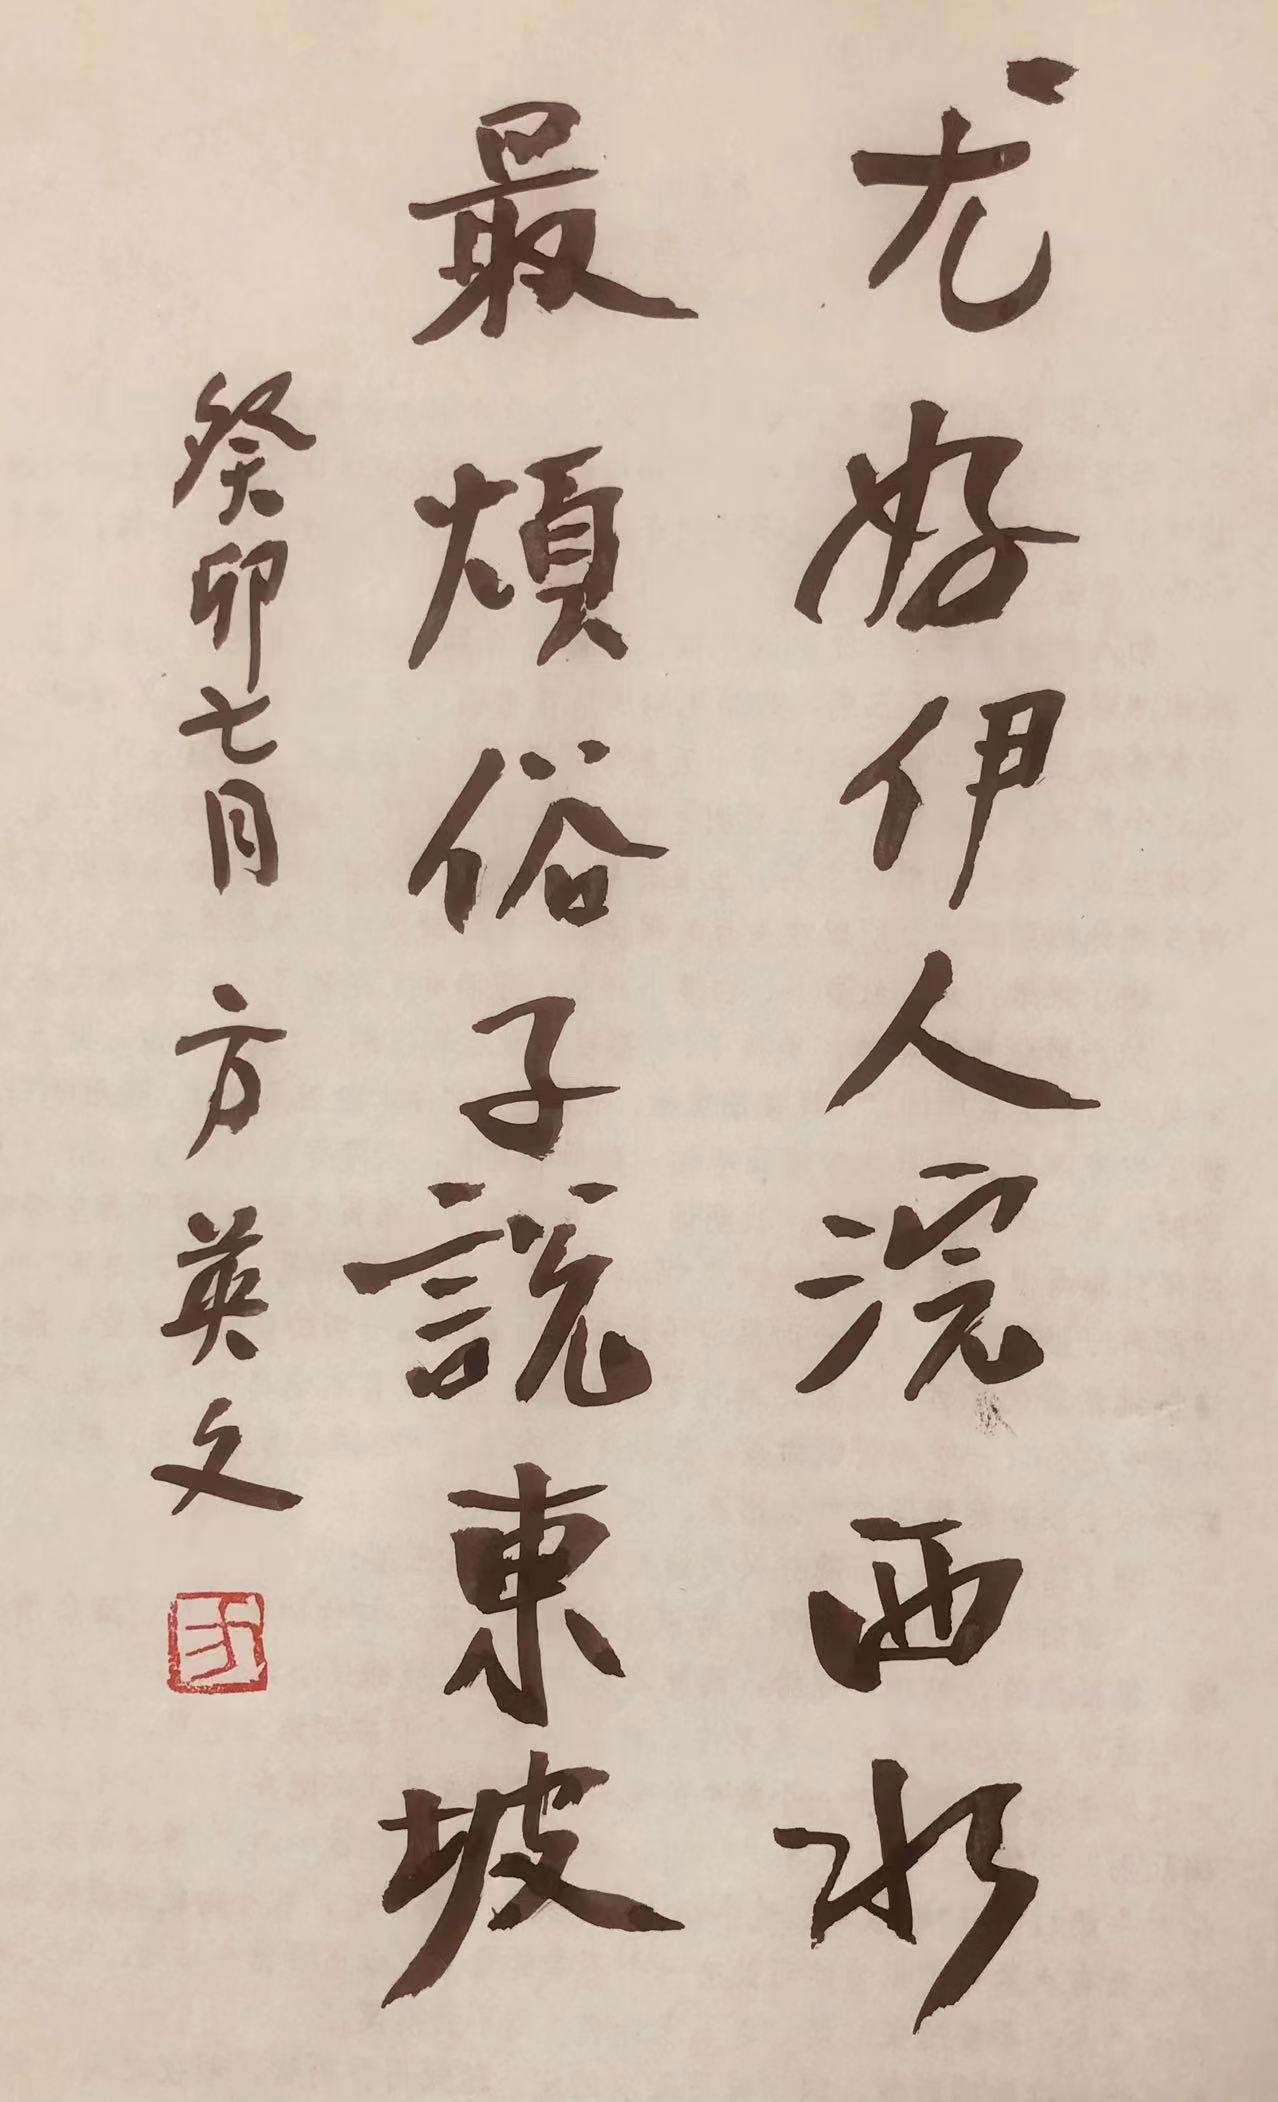 尤好伊人浣西水
最煩俗子說東坡
癸卯七月 方英文
方